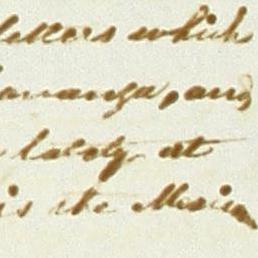 letters which
and
lately at
is the Mexican